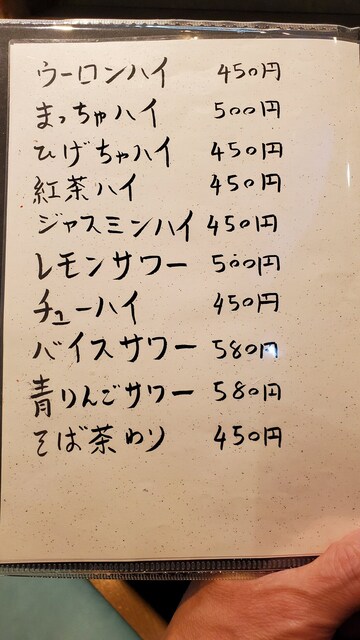 ウーロンハイ 450円
まっちゃハイ 500円
ひげちゃハイ 450円
紅茶ハイ 450円
ジャスミンハイ 450円
レモンサワー 500円
チューハイ 450円
バイスサワー 580円
青りんごサワー 580円
そば茶わり 450円